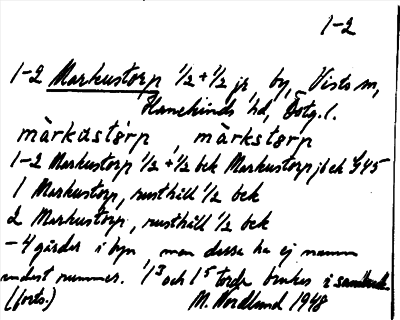 1-2
1-2 Markustorp 1/2 + 1/2 jr, by, Vists sn,
Hanekinds hd, Östg. l.
màrkustòrp, màrkstòrp
1-2 Markustorp 1/2 + 1/2 bek Markustorp jb ek G45
1 Markustorp, rusthåll 1/2 bek
2 Markustorp, rusthåll 1/2 bek
- 4 gårdar i byn men dessa ha ej namn
endast nummer. 1³ och 1⁵ torde brukas i samband.
(forts.) M. Nordlund 1948